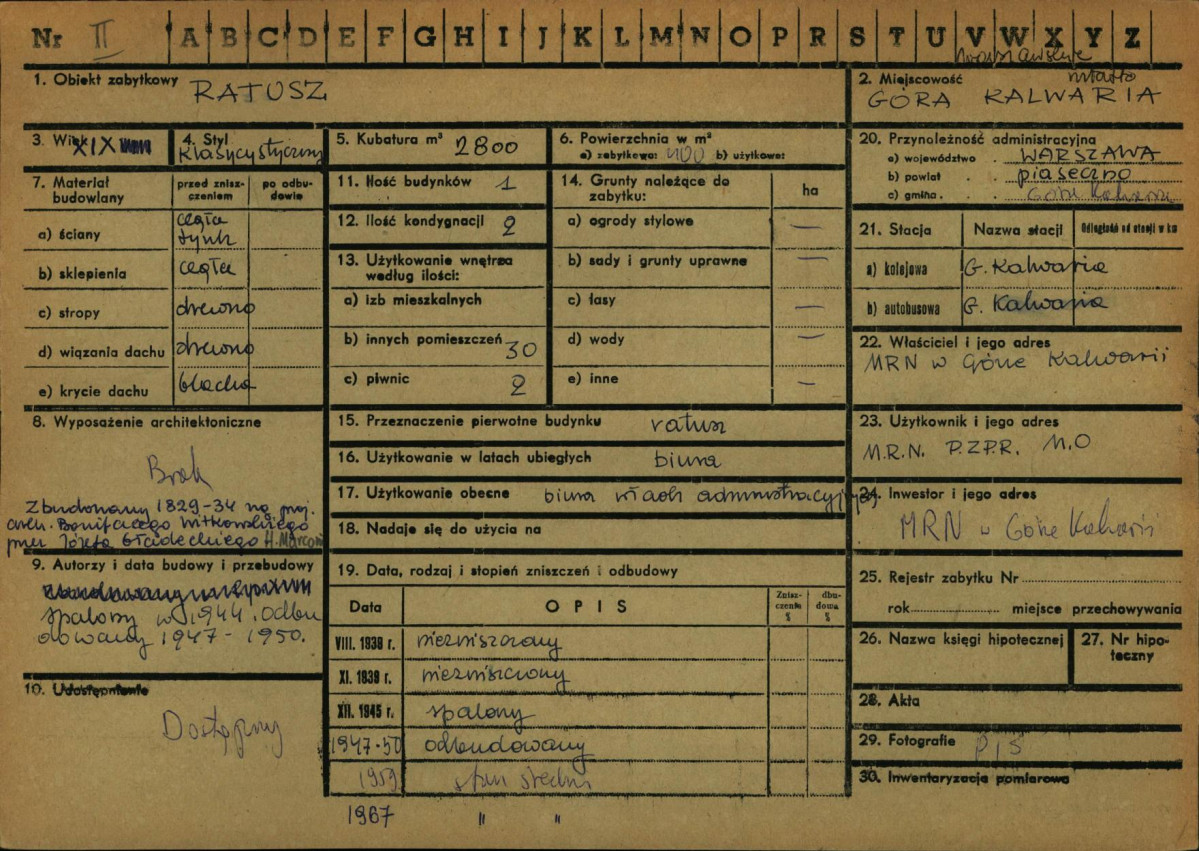 Nr II A B C D E F G H I J K L M N O P R S T U V W X Y Z
1. Obiekt zabytkowy RATUSZ
2. Miejscowość miasto
GÓRA KALWARIA
3. Wiek XIX
4. Styl
klasycystyczny
5. Kubatura m³ 2800
6. Powierzchnia w m²
a) zabytkowa: 400 b) użytkowa:
7. Materiał budowlany
przed zniszczeniem
po odbudowie
a) ściany cegła tynk
b) sklepienia cegła
c) stropy drewno
d) wiązania dachu drewno
e) krycie dachu blacha
8. Wyposażenie architektoniczne
Brak
Zbudowany 1829-34 wg proj.
arch. Bonifacego Witkowskiego
przez Józefa Gładeckiego H. Marconi
9. Autorzy i data budowy i przebudowy
spalony w 1944. Odbu
dowany 1947-1950.
10. Udostępnienie
Dostępny
11. Ilość budynków 1
12. Ilość kondygnacji 2
13. Użytkowanie wnętrza
według ilości:
a) izb mieszkalnych
b) innych pomieszczeń 30
c) piwnic 2
14. Grunty należące do
zabytku: ha
a) ogrody stylowe —
b) sady i grunty uprawne —
c) łasy —
d) wody —
e) inne —
15. Przeznaczenie pierwotne budynku ratusz
16. Użytkowanie w latach ubiegłych biura
17. Użytkowanie obecne biura władz administracyjnych
18. Nadaje się do użycia na
19. Data, rodzaj i stopień zniszczeń i odbudowy
Data OPIS Zniszczenia % dbudowa %
VIII. 1939 r. niezniszczony
XI. 1939 r. niezniszczony
XII. 1945 r. spalony
1947-50 odbudowany
1959 stan średni
1967 " "
20. Przynależność administracyjna
a) województwo . WARSZAWA
b) powiat . . piaseczno
c) gmina . . . Góra Kalwaria
21. Stacja Nazwa stacji Odległość od stacji w km
a) kolejowa G. Kalwaria
b) autobusowa G. Kalwaria
22. Właściciel i jego adres
MRN w Górze Kalwarii
23. Użytkownik i jego adres
M.R.N. P.Z.P.R. M.O
24. Inwestor i jego adres
MRN w Górze Kalwarii
25. Rejestr zabytku Nr
rok miejsce przechowywania
26. Nazwa księgi hipotecznej
27. Nr hipoteczny
28. Akta
29. Fotografie PIS
30. Inwentaryzacja pomiarowa